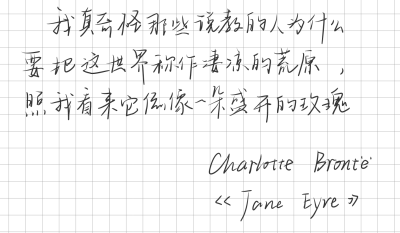 我真奇怪那些说教的人为什么
要把这世界称作凄凉的荒原，
照我看来它仿像一朵盛开的玫瑰
Charlotte Brontë
《Jane Eyre》